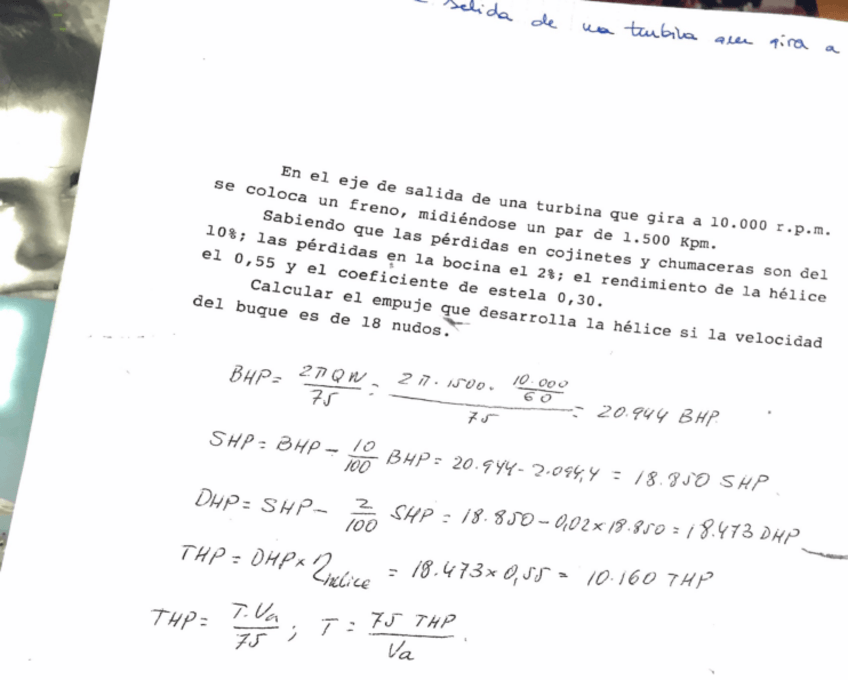 Salida de una turbina que gira a
En el eje de salida de una turbina que gira a 10.000 r.p.m.
se coloca un freno, midiéndose un par de 1.500 Kpm.
Sabiendo que las pérdidas en cojinetes y chumaceras son del
10%; las pérdidas en la bocina el 2%; el rendimiento de la hélice
el 0,55 y el coeficiente de estela 0,30.
Calcular el empuje que desarrolla la hélice si la velocidad
del buque es de 18 nudos.
BHP = 2πQN/75 = 2π·1500·10.000/60/75 = 20.944 BHP
SHP = BHP - 10/100 BHP = 20.944 - 2.094,4 = 18.850 SHP
DHP = SHP - 2/100 SHP = 18.850 - 0,02×18.850 = 18.473 DHP
THP = DHP × η hélice = 18.473×0,55 = 10.160 THP
THP = T·Va/75 ; T = 75 THP/Va